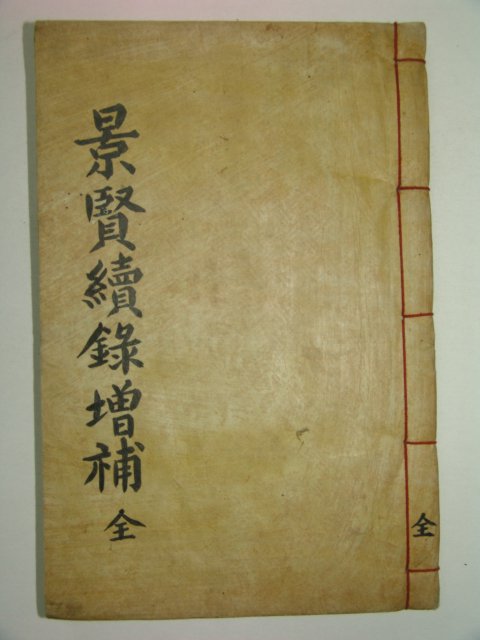 全
景賢續錄增補
全